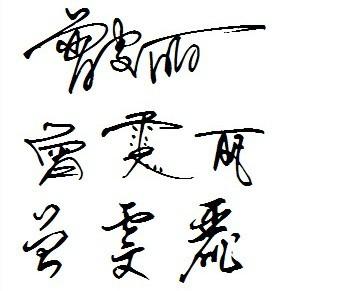 曾雯丽
曾雯丽
曾雯麗